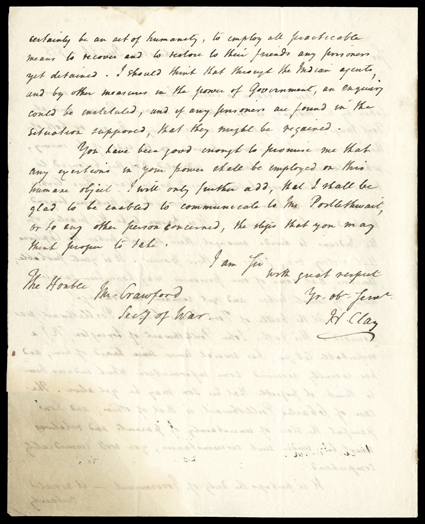 certainly be an act of humanity, to employ all practicable
means to recover and to restore to their friends any prisoners
yet detained. I should think that through the Indian agents,
and by other measures in the power of Government, an enquiry
could be instituted, and if any prisoners are found in the
situation supposed, that they might be regained.
You have been good enough to promise me that
any exertions in your power shall be employed on this
humane object. I will only further add, that I shall be
glad to be enabled to communicate to Mr. Postlethwait,
or to any other person concerned, the steps that you may
think proper to take.
I am Sir
with great respect
Yr. ob. Servt
H. Clay
The Honble
Mr. Crawford
Secy of War.